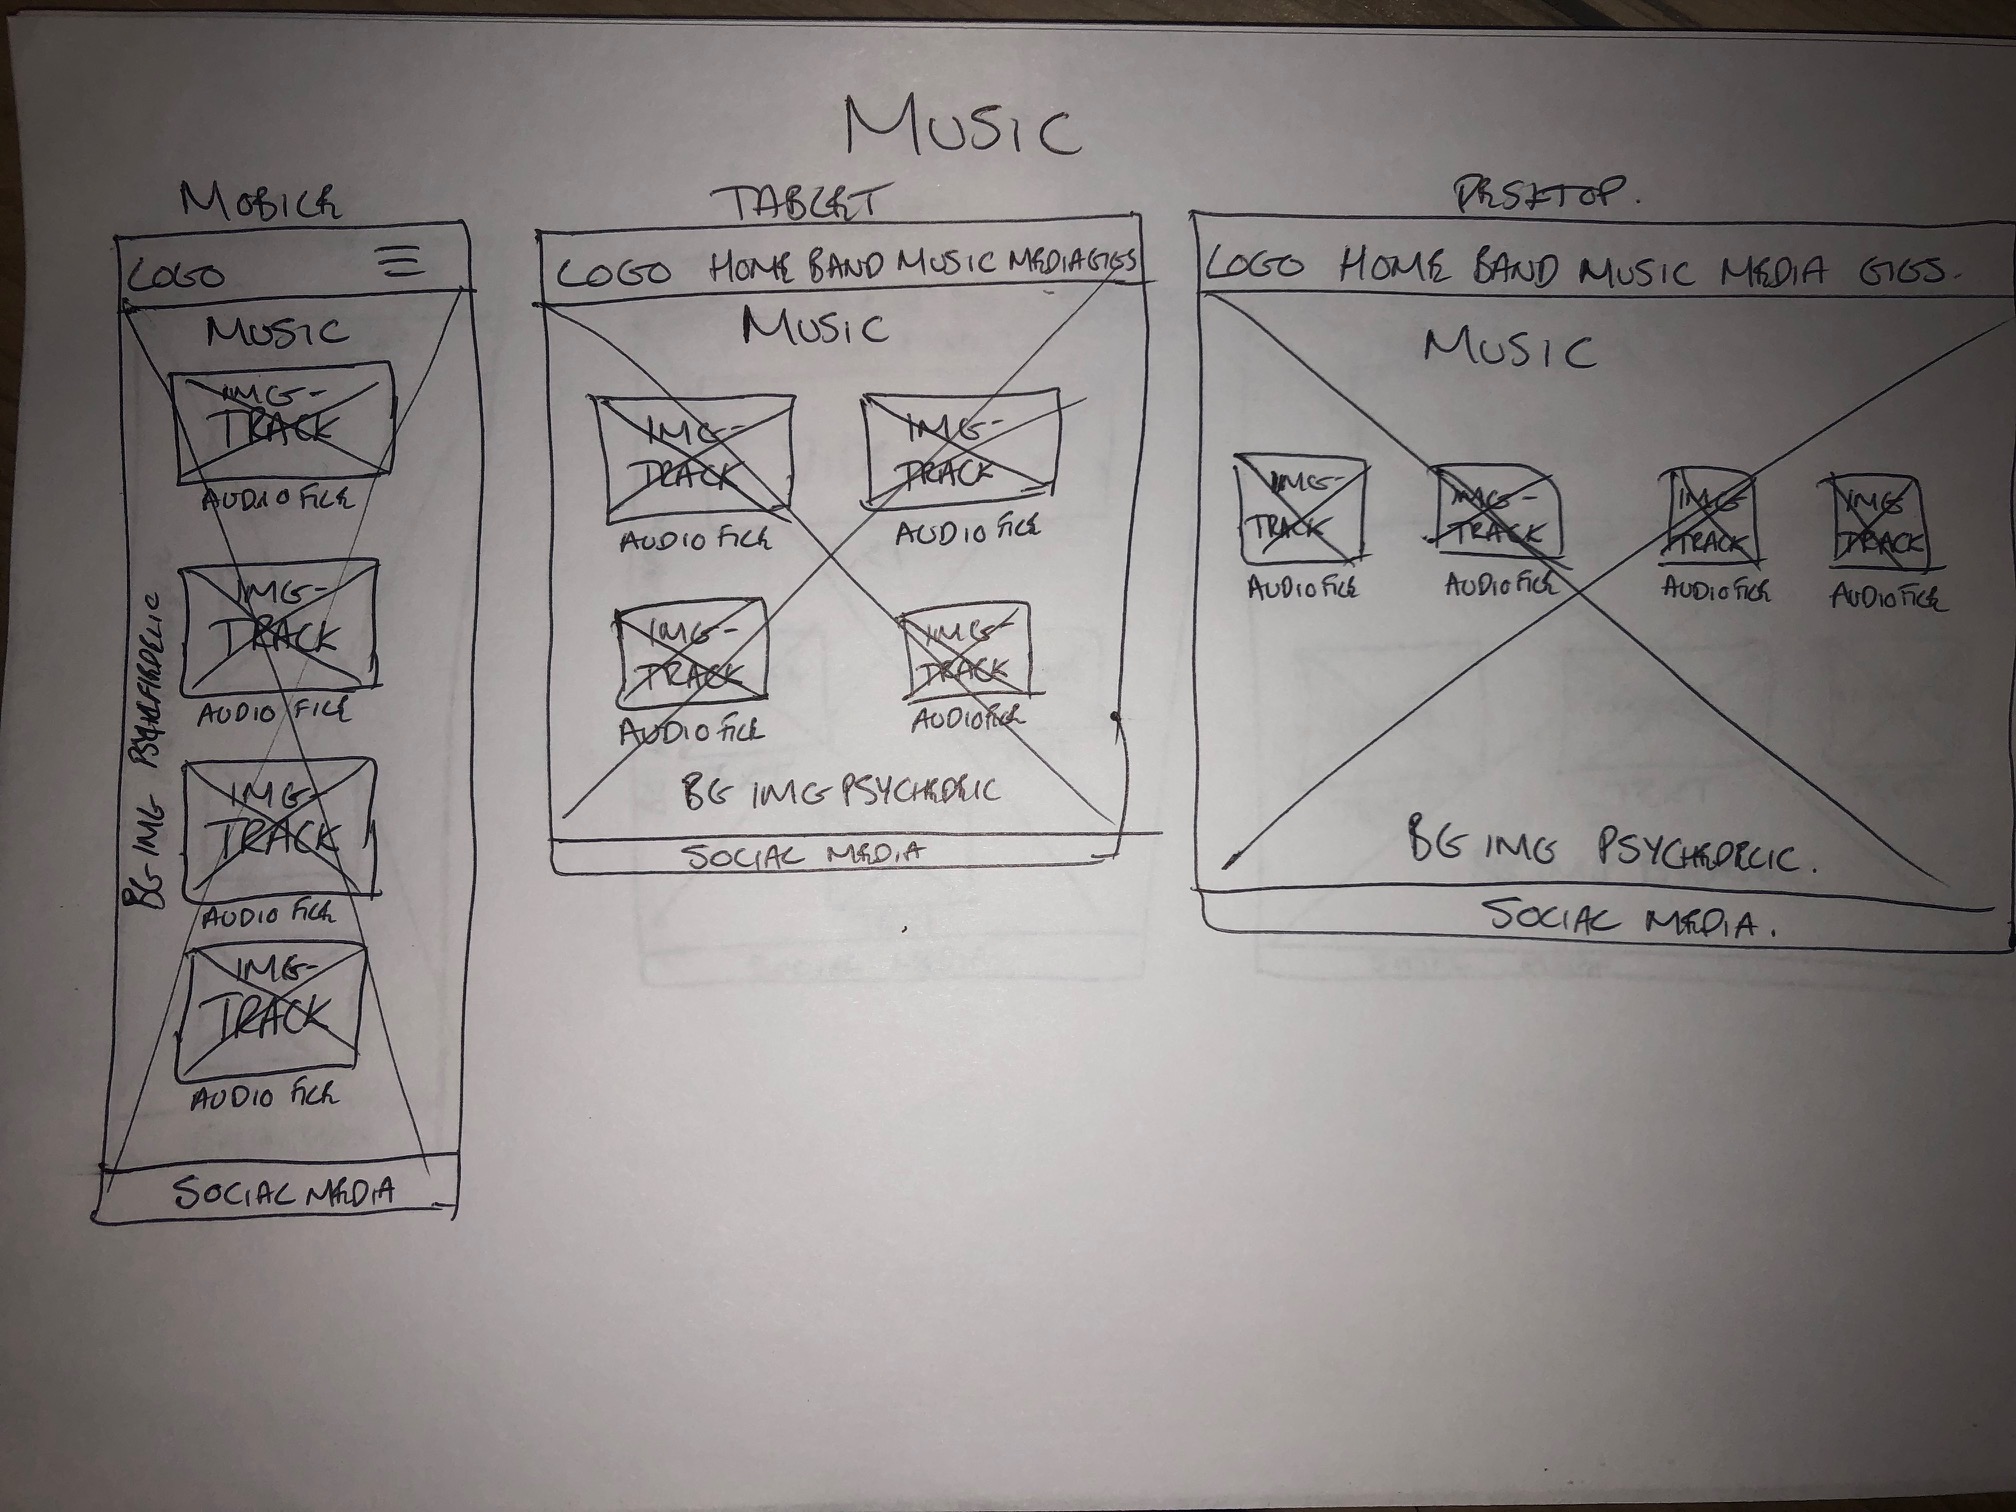 MUSIC
MOBILE
LOGO
MUSIC
IMG-
TRACK
AUDIO FILE
IMG-
TRACK
AUDIO FILE
IMG-
TRACK
AUDIO FILE
IMG-
TRACK
AUDIO FILE
BG IMG
SOCIAL MEDIA
TABLET
LOGO HOME BAND MUSIC MEDIA GIGS
MUSIC
IMG-
TRACK
AUDIO FILE
IMG-
TRACK
AUDIO FILE
IMG-
TRACK
AUDIO FILE
IMG
TRACK
AUDIO FILE
BG IMG PSYCHEDELIC
SOCIAL MEDIA
DESKTOP.
LOGO HOME BAND MUSIC MEDIA GIGS.
MUSIC
IMG-
TRACK
AUDIO FILE
IMG-
TRACK
AUDIO FILE
IMG
TRACK
AUDIO FILE
IMG
TRACK
AUDIO FILE
BG IMG PSYCHEDELIC.
SOCIAL MEDIA.